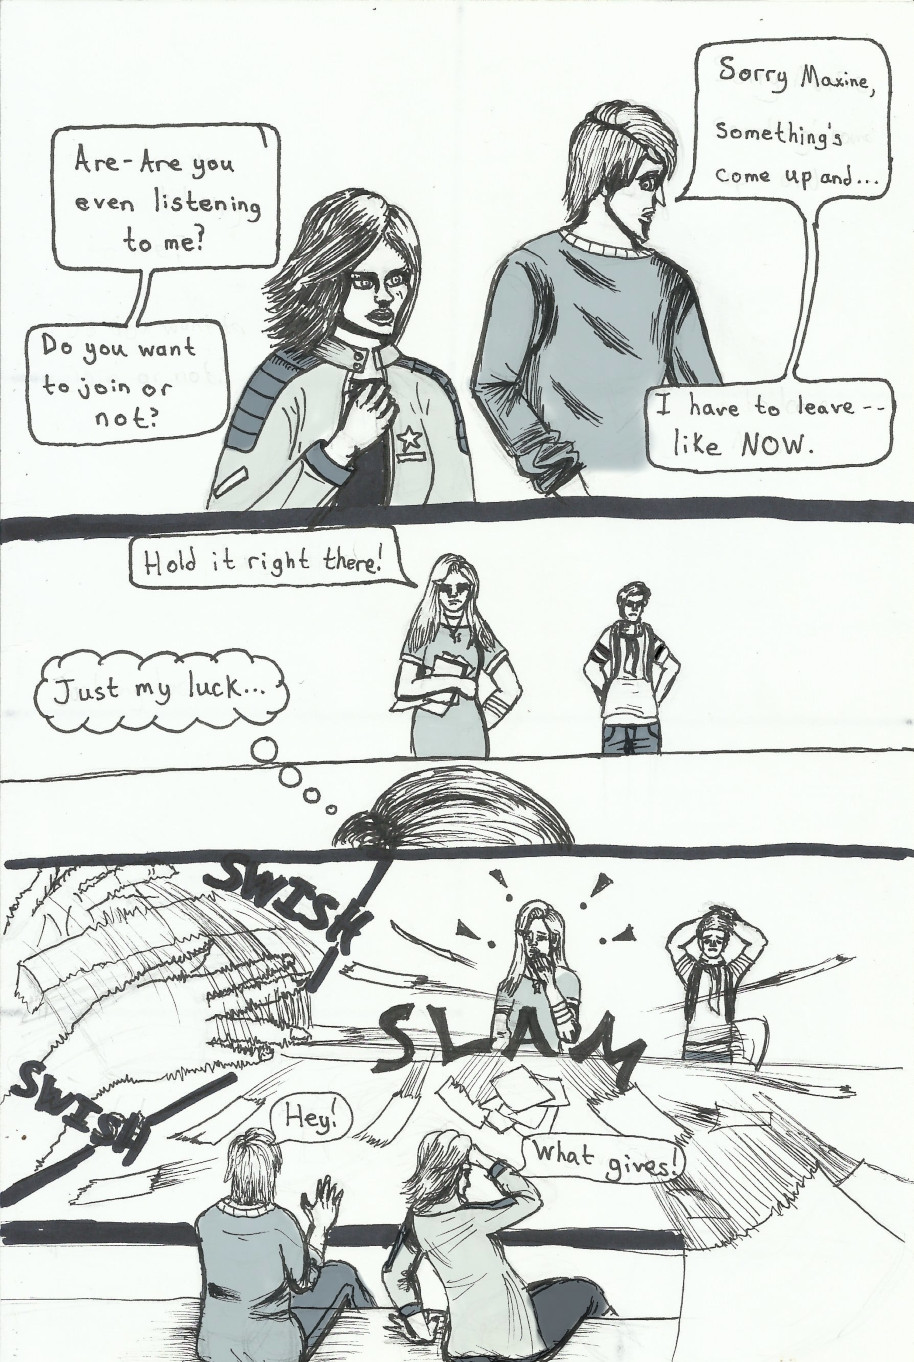 Are-Are you
even listening
to me?
Do you want
to join or
not?
Sorry Maxine,
something's
come up and...
I have to leave--
like NOW.
Hold it right there!
Just my luck...
SWISH
SLAM
SWISH
Hey!
What gives!